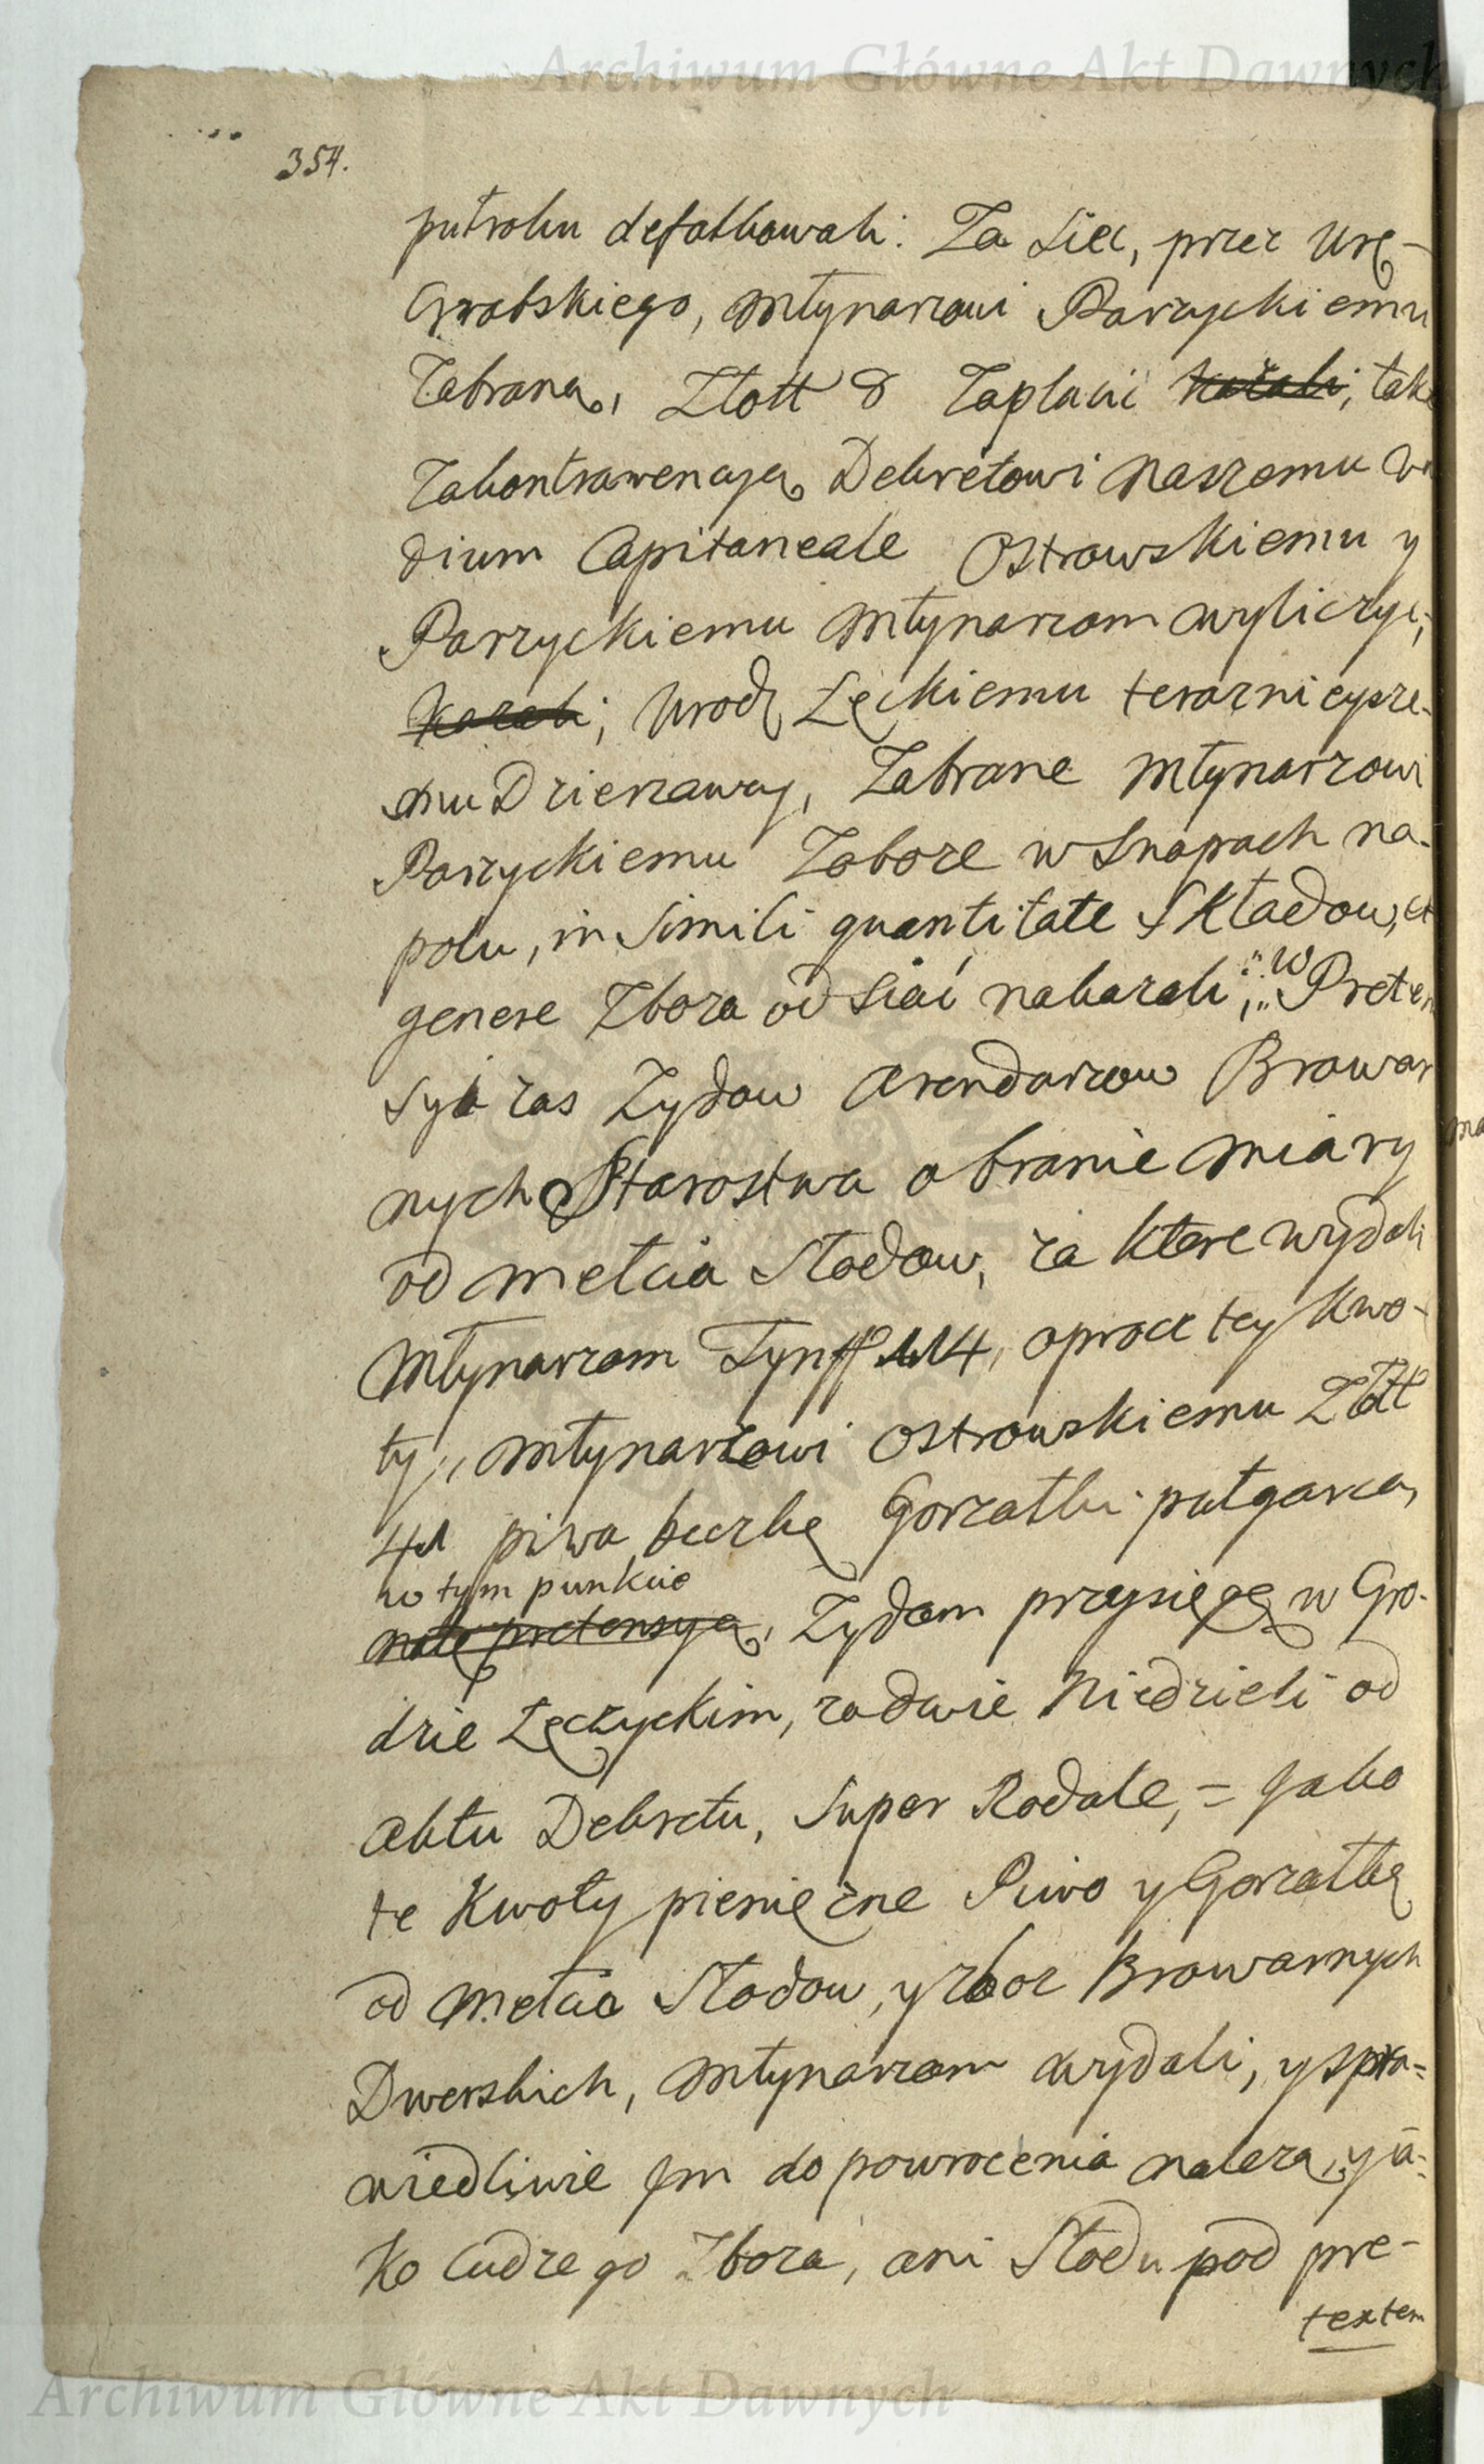 Archiwum Główne Akt Dawnych
354.
putroku defalkowali. Za Siec, przez Urę-
Grabskiego, Młynarzowi Parzyckiemu
Zabraną, Złott 8 Zapłacić kazali, tak
Zakontrawencyą Dekretowi Naszemu
dium Capitaneale Ostrowskiemu y
Parzyckiemu Młynarzom wyliczyć,
kazali; Urodz Łęckiemu teraznieysze-
mu Dzierzawcy, Zabrane Młynarzowi
Parzyckiemu Zboze w Snopach na-
polu, in Simili quantitate Składow, et
genere Zboza odsiać nakazali; w Preten
syi zas Zydow Arendarzow Browar
nych Starostwa o branie miary
od mełcia Słodow, za ktore wydali
Młynarzom Tynff 114, oprocz tey kwo-
ty, Młynarzowi Ostrowskiemu Złott
41 piwa beczkę Gorzałki pułgarca,
w tym punkcie
na tę pretensyą, Zydom przysięgę w Gro-
dzie Łęczyckim, za dwie Niedzieli od
aktu Dekretu, Super Rodale, = Jako
te Kwoty pieniężne Piwo y Gorzałkę
od Mełcia Słodow, y zboz Browarnych
Dworskich, Młynarzom wydali, y spra=
wiedliwie Jm do powrocenia należą, y ia=
ko Cudzego Zboza, ani Słodu pod pre-
textem
Archiwum Główne Akt Dawnych